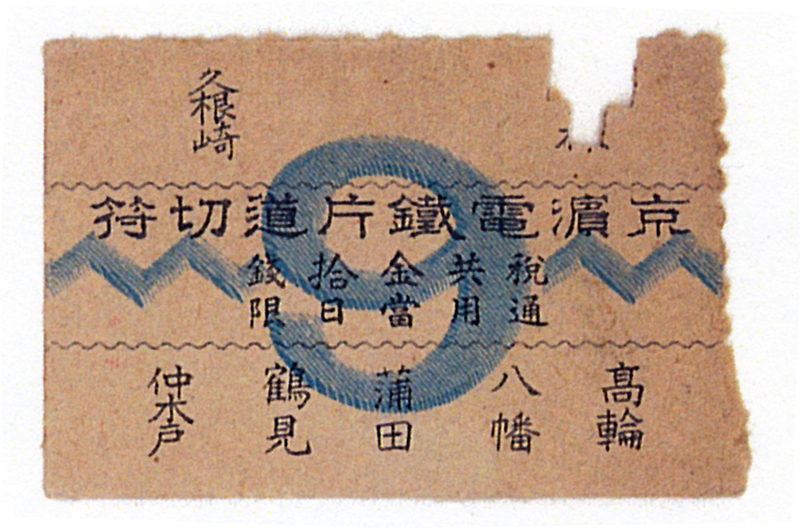 久根崎
京濱電鐵片道切符
9
税共金拾錢
通用當日限
髙輪
八幡
蒲田
鶴見
仲木戸